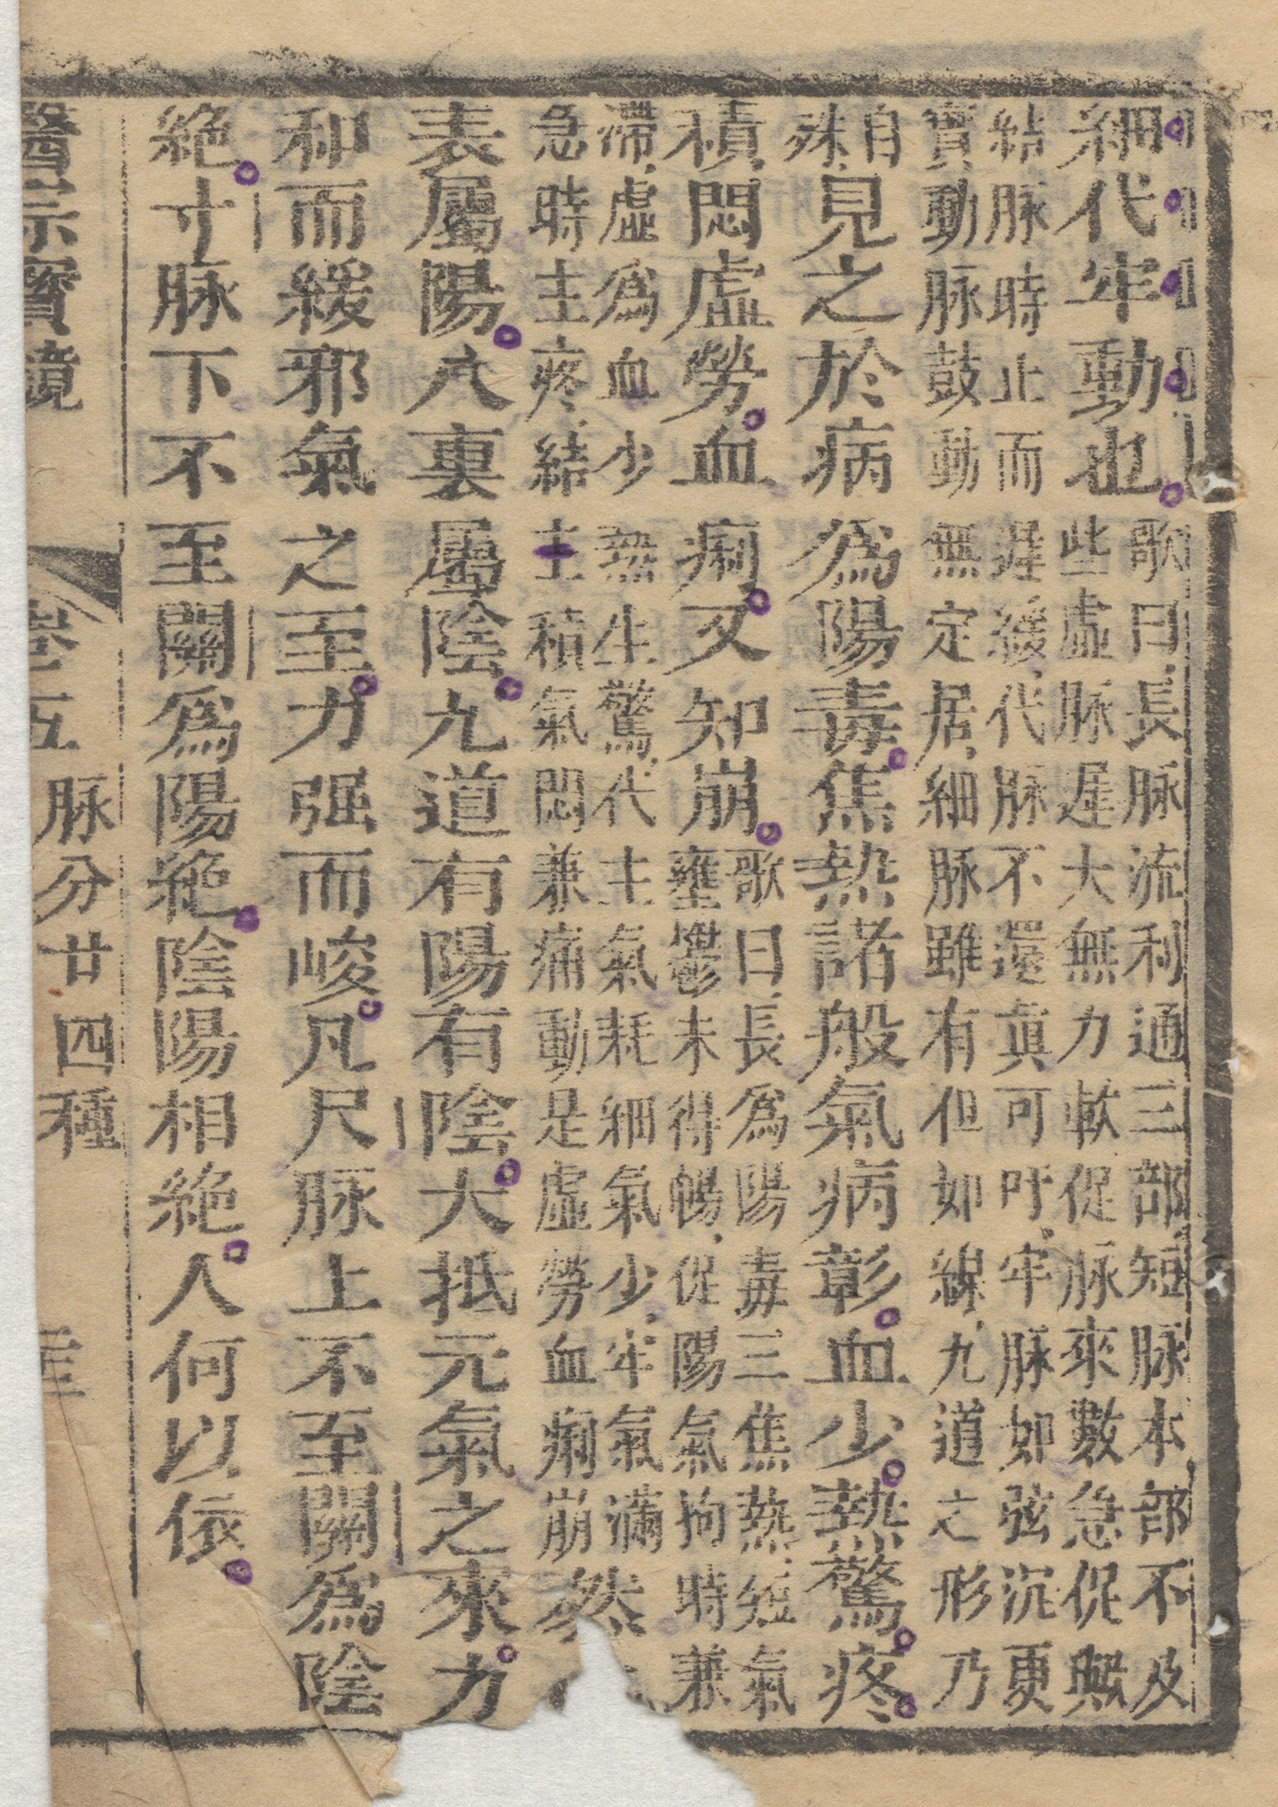 細代牢動也
歌曰長脉流利通三部短脉本部不及
些虛脉遲大無力軟促脉來數急促
結脉時止而遲緩代脉不還眞可吁牢脉如弦沉更
實動脉鼓動無定居細脉雖有但如線九道之形乃
自
殊
見之於病爲陽毒焦熱諸般氣病彰血少熱驚疼
積悶虛勞血痢又知崩
歌曰長爲陽毒三焦熱短氣
壅鬱未得暢促陽氣拘時兼
滯虛爲血少熱生驚代主氣耗細氣少牢氣滿
急時主疼結主積氣悶兼痛動是虛勞血痢崩
然
表屬陽六裏屬陰九道有陽有陰大抵元氣之來力
和而緩邪氣之至力强而峻凡尺脉上不至關爲陰
絶寸脉下不至關爲陽絶陰陽相絶人何以依
醫宗寶鏡 卷五 脉分廿四種